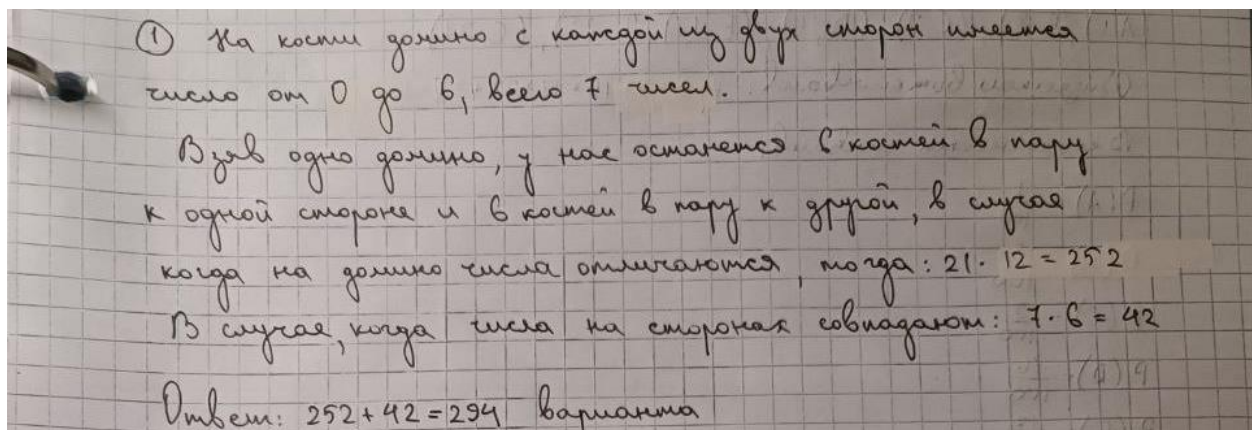 ① На кости домино с каждой из двух сторон имеется
число от 0 до 6, всего 7 чисел.
Взяв одно домино, у нас останется 6 костей в пару
к одной стороне и 6 костей в пару к другой, в случае
когда на домино числа отличаются, тогда: 21 · 12 = 252
В случае, когда числа на сторонах совпадают: 7 · 6 = 42
Ответ: 252 + 42 = 294 варианта